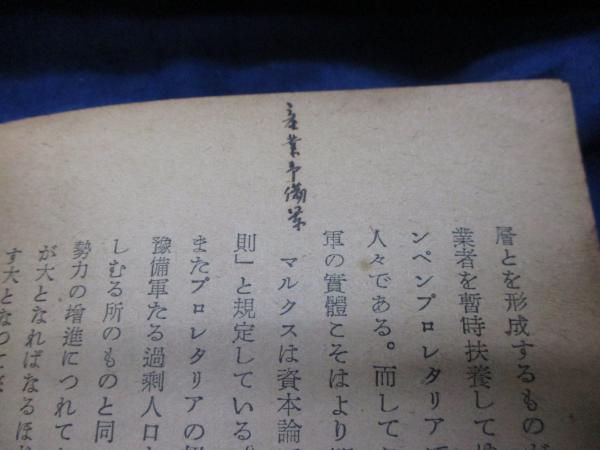 産業予備軍
層とを形成するものが
業者を暫時扶養して
ンペンプロレタリア
人々である。而して
軍の實體こそはより
マルクスは資本論
則」と規定している。
またプロレタリアの
豫備軍たる過剩人口
しむる所のものと同
勢力の増進につれて
が大となればなるほ
す大となつて